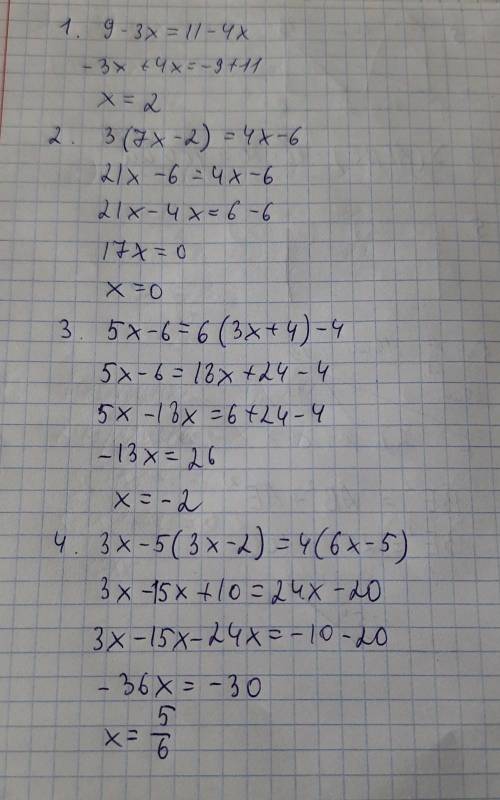 1. 9-3x=11-4x
-3x+4x=-9+11
x=2
2. 3(7x-2)=4x-6
21x-6=4x-6
21x-4x=6-6
17x=0
x=0
3. 5x-6=6(3x+4)-4
5x-6=18x+24-4
5x-18x=6+24-4
-13x=26
x=-2
4. 3x-5(3x-2)=4(6x-5)
3x-15x+10=24x-20
3x-15x-24x=-10-20
-36x=-30
x=5/6